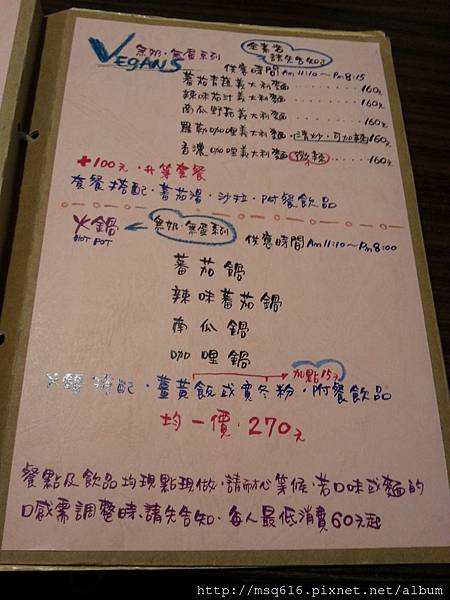 VEGANS 無奶·無蛋系列 全素者請先告知
供應時間 Am11:10～Pm8:15
蕃茄青蔬義大利麵......160元
辣味茄汁義大利麵......160元
南瓜野菇義大利麵......160元
羅勒咖哩義大利麵(清炒·可加辣)160元
香濃咖哩義大利麵(微辣)......160元
+100元·升等套餐
套餐搭配·蕃茄湯·沙拉·附餐飲品
火鍋 HOT POT 無奶·無蛋系列 供應時間Am11:10～Pm8:00
蕃茄鍋
辣味蕃茄鍋
南瓜鍋
咖哩鍋
加點15元
火鍋搭配·薑黃飯或寬冬粉·附餐飲品
均一價·270元
餐點及飲品均現點現做·請耐心等候·若口味或麵的
口感需調整時·請先告知·每人最低消費60元起
http://msq616.pixnet.net/album